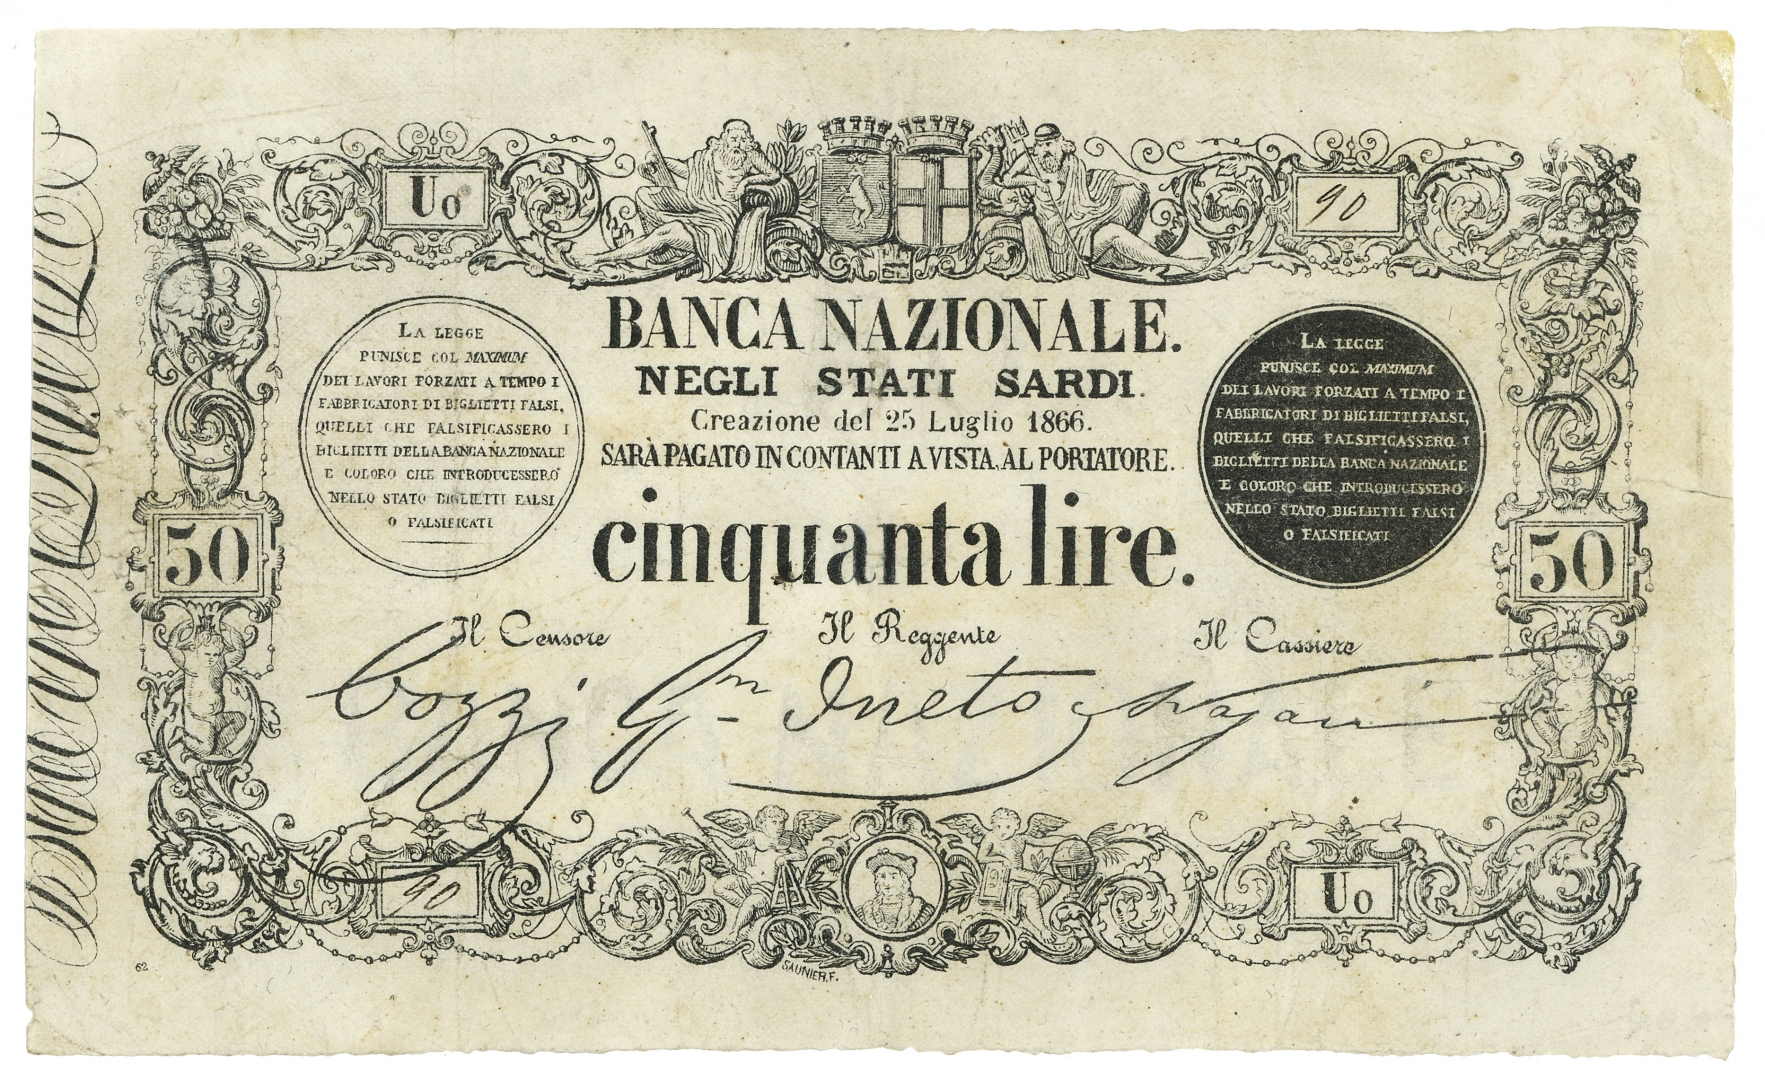 Uo
90
BANCA NAZIONALE.
NEGLI STATI SARDI.
Creazione del 25 Luglio 1866.
SARÀ PAGATO IN CONTANTI A VISTA, AL PORTATORE.
cinquanta lire.
LA LEGGE
PUNISCE COL MAXIMUM
DEI LAVORI FORZATI A TEMPO I
FABBRICATORI DI BIGLIETTI FALSI,
QUELLI CHE FALSIFICASSERO I
BIGLIETTI DELLA BANCA NAZIONALE
E COLORO CHE INTRODUCESSERO
NELLO STATO BIGLIETTI FALSI
O FALSIFICATI
LA LEGGE
PUNISCE COL MAXIMUM
DEI LAVORI FORZATI A TEMPO I
FABBRICATORI DI BIGLIETTI FALSI,
QUELLI CHE FALSIFICASSERO I
BIGLIETTI DELLA BANCA NAZIONALE
E COLORO CHE INTRODUCESSERO
NELLO STATO BIGLIETTI FALSI
O FALSIFICATI
50
50
Il Censore
Il Reggente
Il Cassiere
Cozzi
90
Uo
62
SAUNIER, F.